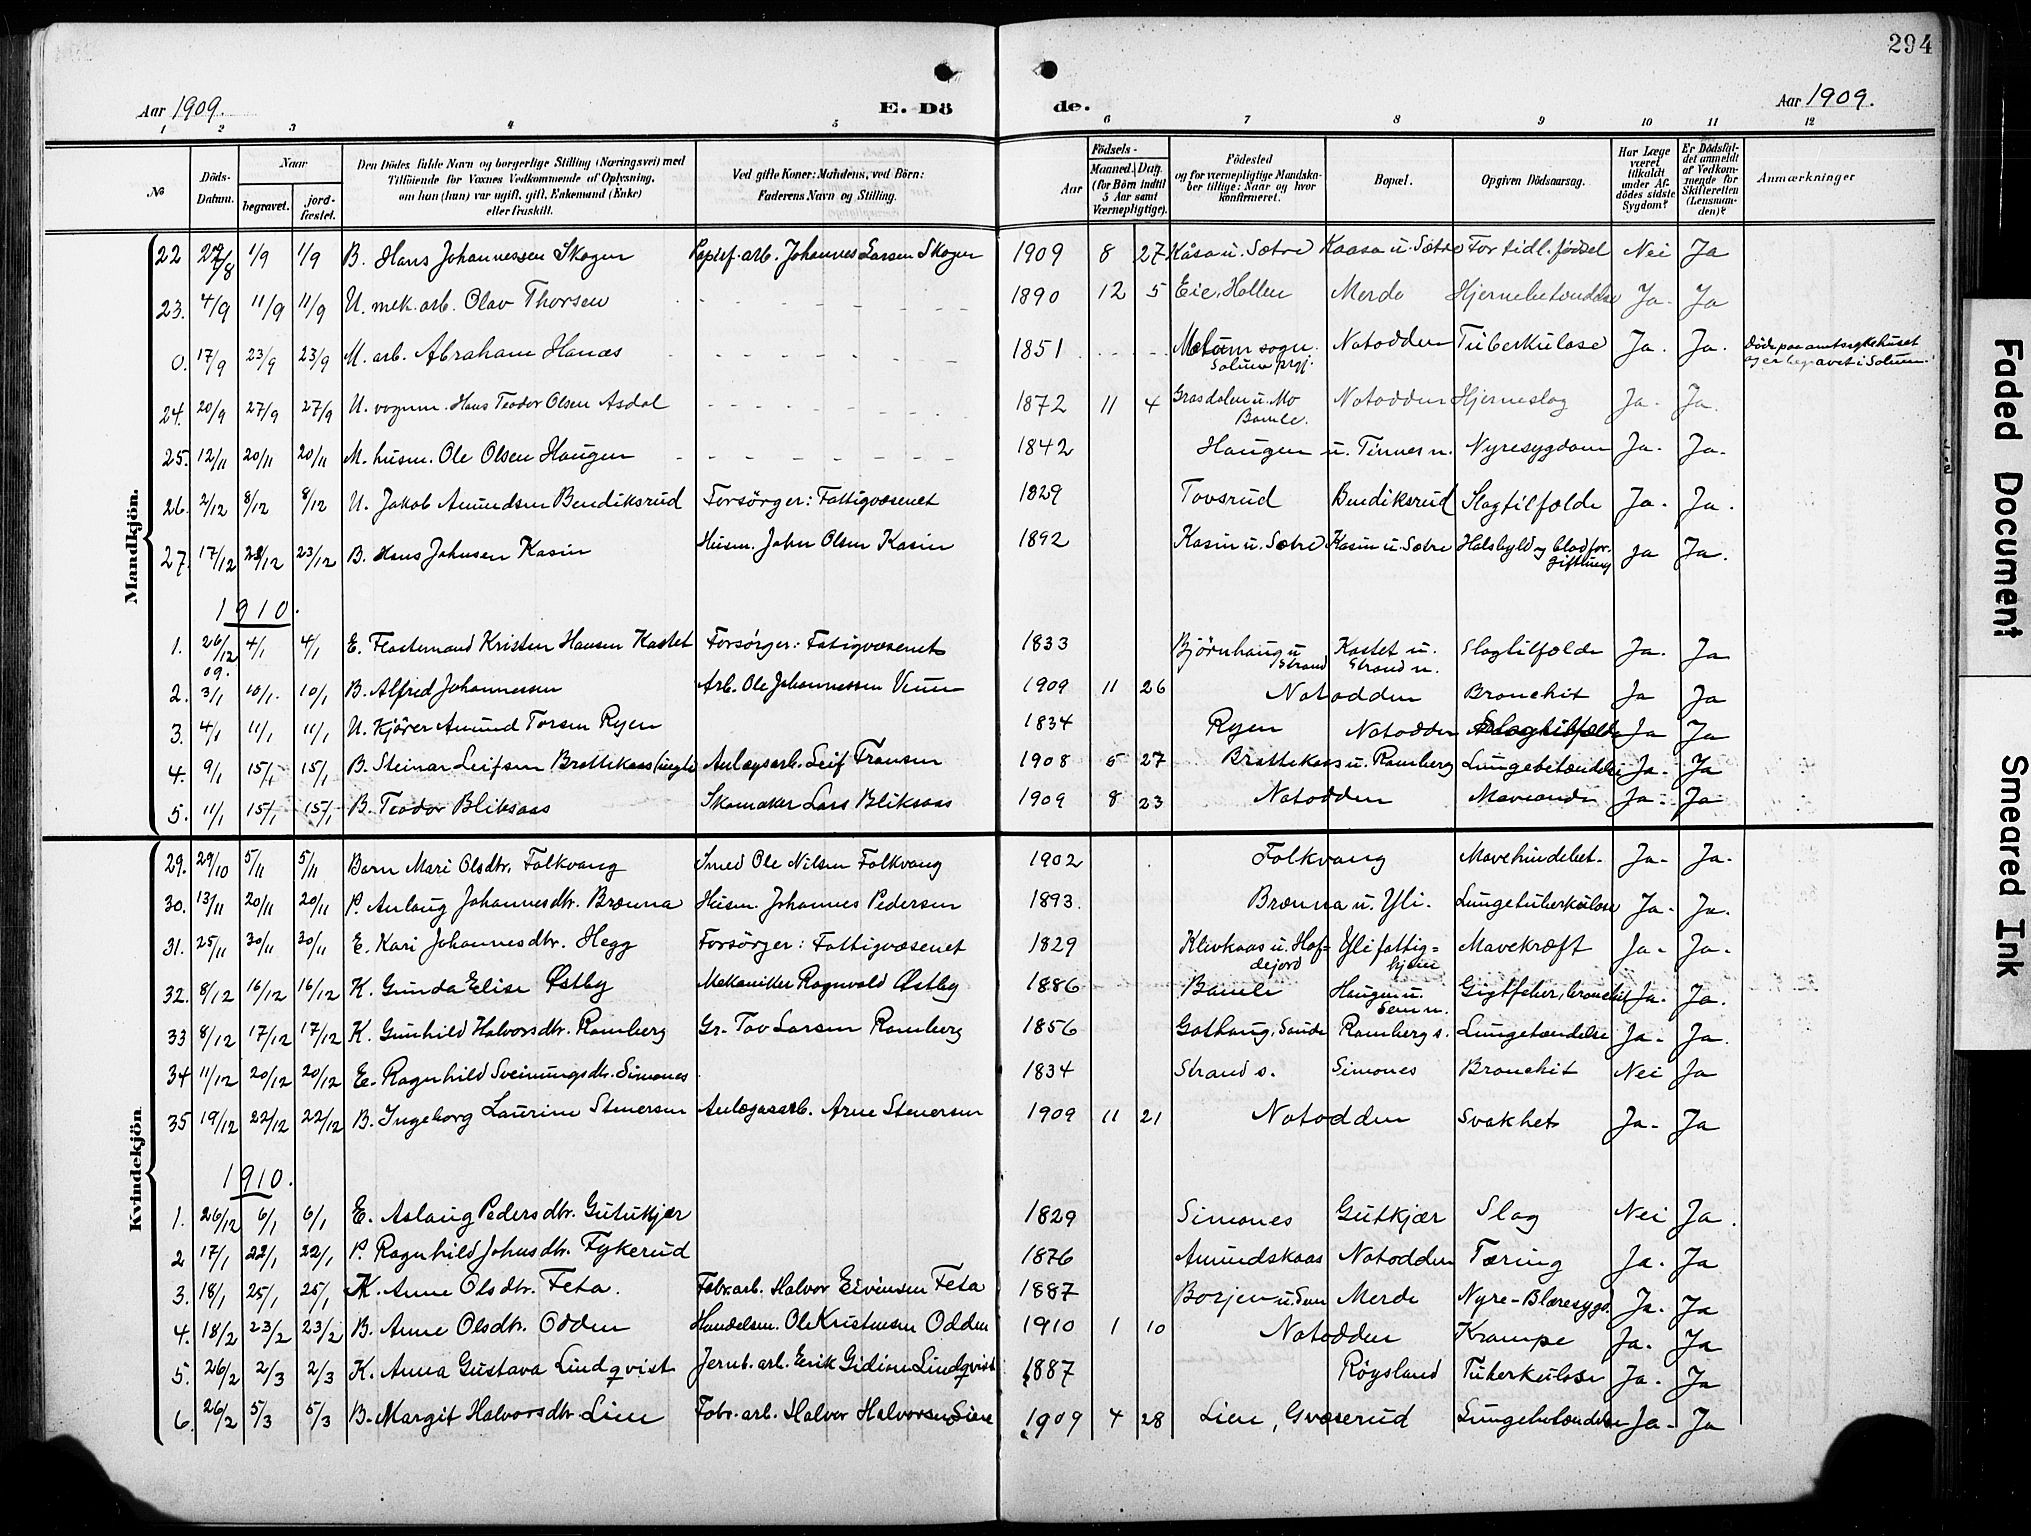 294
Aar 1909. E. Dö de. Aar 1909.
1 2 3 4 5 6 7 8 9 10 11 12
No Döds-Datum. Naar begravet. jordfæstet. Den Dödes fulde Navn og borgerlige Stilling (Næringsvei) med Tilföiende for Voxnes Vedkommende af Oplysning, om han (hun) var ugift, gift, Enkemand (Enke) eller fraskilt. Ved gifte Koner: Mandens, ved Börn: Faderens Navn og Stilling. Födsels- Aar Maaned. Dag. (for Börn indtil 5 Aar samt Værnepligtige). Födested og for værnepligtige Mandskaber tillige: Naar og hvor konfirmeret. Bopæl. Opgiven Dödsaarsag. Har Læge været tilkaldt under Afdödes sidste Sygdom? Er Dödsfaldet anmeldt af Vedkommende for Skifteretten (Lensmanden)? Anmærkninger
Mandkjön.
22 27/8 1/9 1/9 B. Hans Johannessen Skogen Papirf. arb. Johannes Larsen Skogen 1909 8 27 Kåsa u. Sætre Kaasa u. Sætre For tidl. fødsel Nei Ja
23. 4/9 11/9 11/9 U. mek. arb. Olav Thorsen - - - 1890 12 5 Eie, Hollen Merde Hjernebetændelse Ja- Ja
0. 17/9 23/9 23/9 M. arb. Abraham Hanæs - - - 1851 - - - Melum sogn. Solum prgj. Notodden Tuberkulose Ja- Ja. Døde paa amtssykehuset og er begravet i Solum.
24. 20/9 27/9 27/9 U. vognm. Hans Teodor Olsen Asdal - - - 1872 11 4 Grasdalen u. Mo Bamle. Notodden Hjerneslag Ja- Ja.
25. 12/11 20/11 20/11 M. husm. Ole Olsen Haugen - - - 1842 Haugen u. Tinnes n. Nyresygdom Ja- Ja.
26. 2/12 8/12 8/12 U. Jakob Amundsen Bendiksrud Forsørger: Fattigvæsenet 1829 Tovsrud Bendiksrud Slagtilfælde Ja- Ja.
27. 17/12 23/12 23/12 B. Hans Johnsen Kasin Husm. John Olsen Kasin 1892 Kasin u. Sætre Kasin u. Sætre Halsbyld og blodforgiftning Ja Ja.
1910.
1. 26/12 09. 4/1 4/1 E. Flostemand Kristen Hansen Kastet Forsørger: Fatigvæsenet 1833 Bjørnhaug u Strand Kastet u. Strand n. Slagtilfælde Ja- Ja
2. 3/1 10/1 10/1 B. Alfred Johannessen Arb. Ole Johannessen Venn 1909 11 26 Notodden Bronchit Ja Ja
3. 4/1 11/1 11/1 U. Kjörer Amund Torsen Ryen 1834 Ryen Notodden Slagtilfælde Ja Ja
4. 9/1 15/1 15/1 B. Steinar Leifsen Brattekaas Anlægsarb. Leif Fransen 1908 5 27 Brattekaas u. Ramberg Lungebetændelse Ja- Ja
5. 11/1 15/1 15/1 B. Teodor Bliksaas Skomaker Lars Bliksaas 1909 8 23 Notodden Maveonde Ja- Ja
Kvindekjön.
29. 29/10 5/11 5/11 Barn Mari Olsdtr. Folkvang Smed Ole Nilsen Folkvang 1902 Folkvang Mavehindebet. Ja- Ja.
30. 13/11 20/11 20/11 P. Anlaug Johannesdtr. Brænna Husm. Johannes Pedersen 1893. Brænna u. Yli. Lungetuberkulose Ja- Ja.
31. 25/11 30/11 30/11 E. Kari Johannesdtr. Hegg Forsørger: Fattigvæsenet 1829 Klevkaas u. Hofdejord Yli fattig=hjem Mavekræft Ja- Ja.
32. 8/12 16/12 16/12 K. Gunda Elise Østby Mekaniker Ragnvald Østby 1886 Bamle Haugen u. Sem n. Gigtfeber, bronchit Ja- Ja.
33 8/12 17/12 17/12 K. Gunhild Halvorsdtr. Ramberg Gr. Tov Larsen Ramberg 1856 Gothaug, Saude Ramberg s. Lungetændelse Ja- Ja.
34 11/12 20/12 20/12 E. Ragnhild Sveinungsdtr. Simones 1834 Strand s. Simones Bronchit Nei Ja
35 19/12 22/12 22/12 B. Ingeborg Laurine Stenersen Anlægsarb. Arne Stenersen 1909 11 21 Notodden Svakhet Ja- Ja
1910.
1. 26/12 6/1 6/1 E. Aslaug Pedersdtr. Gutukjær 1829 Simones Gutkjær Slag Nei Ja.
2 17/1 22/1 22/1 P. Ragnhild Johnsdtr. Fykerud 1876 Amundskaas Notodden Tæring Ja- Ja
3. 18/1 25/1 25/1 K. Anne Olsdtr. Feta. Fabr. arb. Halvor Eivinsen Feta 1887 Borjen u. Sem Merde Nyre-Blæresygd. Ja- Ja
4. 18/2 23/2 23/2 B. Anne Olsdtr. Odden Handelsm. Ole Kristensen Odden 1910 1 10 Notodden Krampe Ja- Ja
5. 26/2 2/3 2/3 K. Anna Gustava Lindqvist Jernb. arb. Erik Gidion Lindqvist 1887 Røysland Tuberkulose Ja- Ja
6. 26/2 5/3 5/3 B. Margit Halvorsdtr. Lien Fabr. arb. Halvor Halvorsen Lien 1909 4 28 Lien, Gvæserud Lungebetændelse Ja- Ja
Faded Document
Smeared Ink